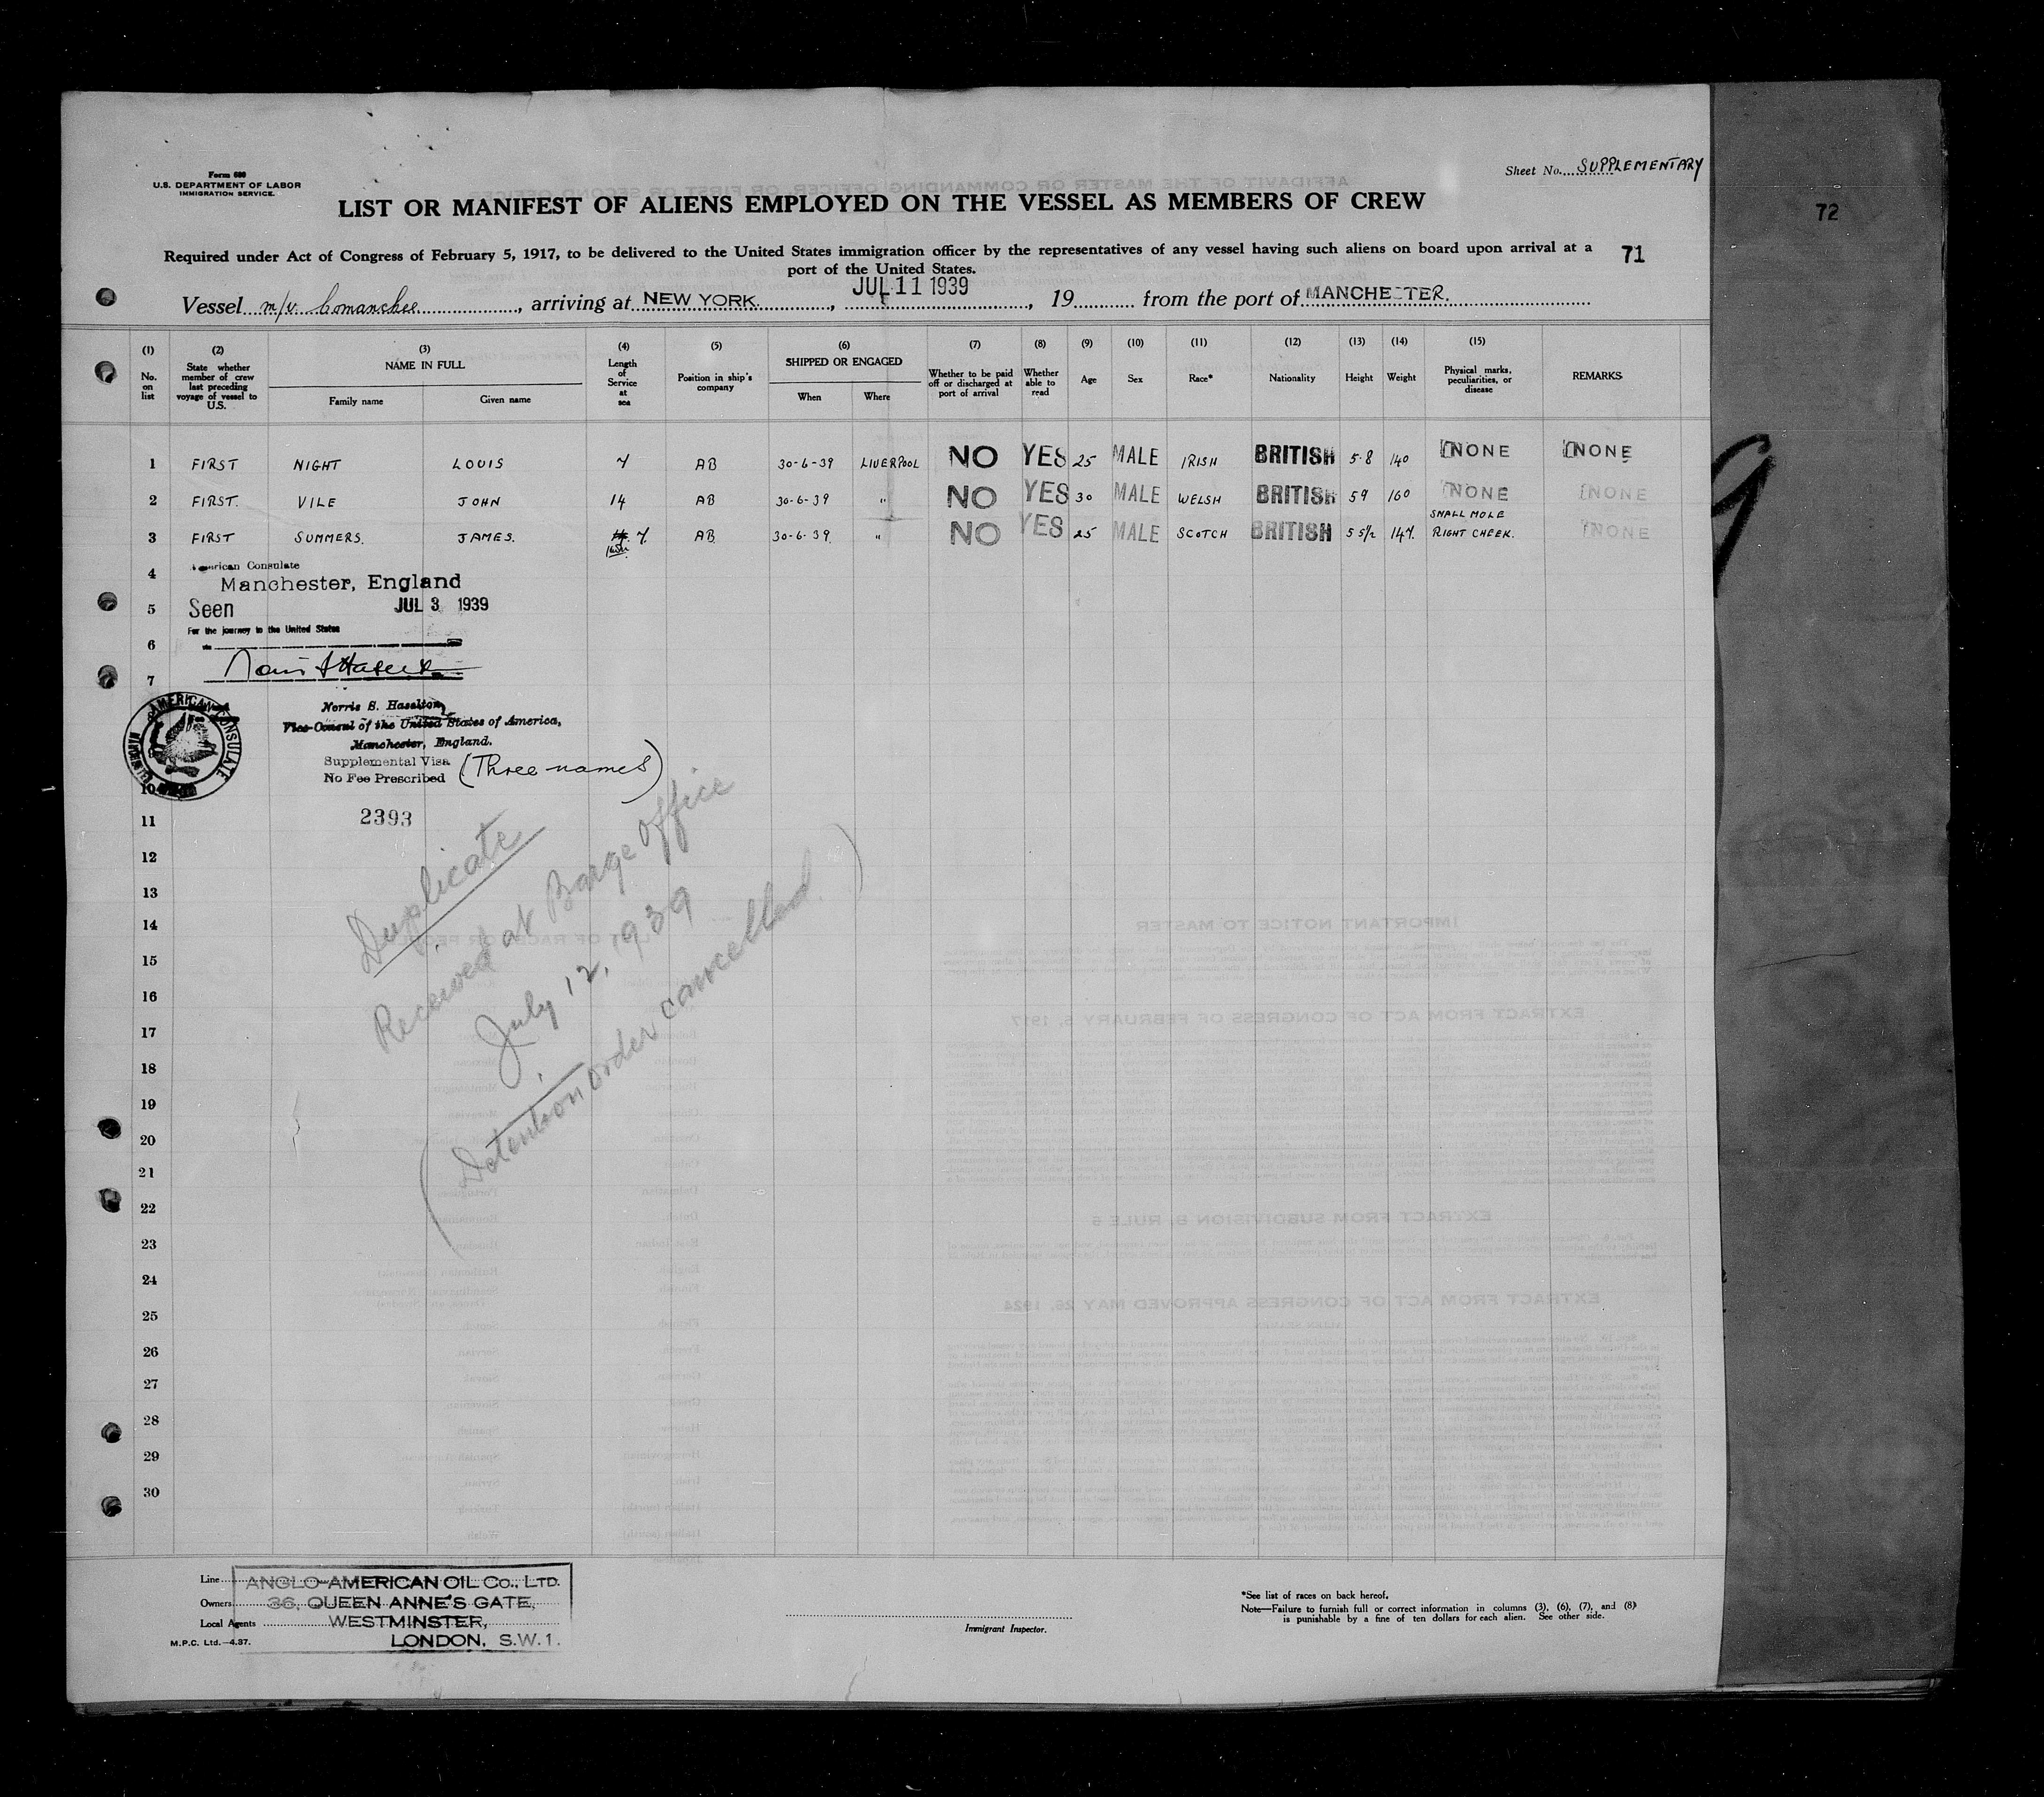 Form 680
U.S. DEPARTMENT OF LABOR
IMMIGRATION SERVICE.
Sheet No. SUPPLEMENTARY
72
LIST OR MANIFEST OF ALIENS EMPLOYED ON THE VESSEL AS MEMBERS OF CREW
Required under Act of Congress of February 5, 1917, to be delivered to the United States immigration officer by the representatives of any vessel having such aliens on board upon arrival at a
port of the United States.
71
Vessel m/v Comanchee, arriving at NEW YORK., JUL 11 1939, 19 from the port of MANCHESTER.
(1) No. on list
(2) State whether member of crew last preceding voyage of vessel to U.S.
(3) NAME IN FULL Family name Given name
(4) Length of Service at sea
(5) Position in ship's company
(6) SHIPPED OR ENGAGED When Where
(7) Whether to be paid off or discharged at port of arrival
(8) Whether able to read
(9) Age
(10) Sex
(11) Race*
(12) Nationality
(13) Height
(14) Weight
(15) Physical marks, peculiarities, or disease
REMARKS
1 FIRST NIGHT LOUIS 7 AB 30-6-39 LIVERPOOL NO YES 25 MALE IRISH BRITISH 5·8 140 NONE NONE
2 FIRST. VILE JOHN 14 AB 30-6-39 " NO YES 30 MALE WELSH BRITISH 59 160 NONE NONE
3 FIRST SUMMERS. JAMES. 7. AB 30-6-39 " NO YES 25 MALE SCOTCH BRITISH 5 5½ 147. SMALL MOLE RIGHT CHEEK. NONE
4
American Consulate
Manchester, England
5 Seen JUL 3 1939
For the journey to the United States
6
7
Norris S. Haselton
Vice-Consul of the United States of America,
Manchester, England.
Supplemental Visa
No Fee Prescribed (Three names)
AMERICAN CONSULATE
10
2393
11
12
13
14
15
16
17
18
19
20
21
22
23
24
25
26
27
28
29
30
Duplicate
Received at Barge Office
July 12, 1939
(Detention order cancelled.)
Line ANGLO-AMERICAN OIL CO., LTD.
Owners 36, QUEEN ANNE'S GATE,
Local Agents WESTMINSTER,
LONDON, S.W.1.
M.P.C. Ltd.—4.37.
Immigrant Inspector.
*See list of races on back hereof.
Note—Failure to furnish full or correct information in columns (3), (6), (7), and (8)
is punishable by a fine of ten dollars for each alien. See other side.